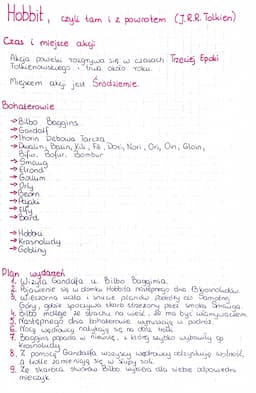 Hobbit, czyli tam i z powrotem (J.R.R. Tolkien)
Czas i miejsce akcji
Akcja powieści rozgrywa się w czasach Trzeciej Epoki
Tolkienowskiego i trwa około roku.
Miejscem akcji jest Śródziemie.
Bohaterowie
→ Bilbo Baggins
→ Gandalf
→ Thorin Dębowa Tarcza
→ Dwalin, Balin, Kili, Fili, Dori, Nori, Ori, Oin, Gloin,
Bifur, Bofur, Bombur
→ Smaug
→ Elrond
→ Gollum
→ Orły
→ Beorn
→ Pająki
→ Elfy
→ Bard
→ Hobbici
→ Krasnoludy
→ Gobliny
Plan wydarzeń
1. Wizyta Gandalfa u Bilbo Bagginsa.
2. Pojawienie się w domku Hobbita następnego dnia 13 krasnoludów.
3. Wieczorna uczta i snucie planów podróży do Samotnej
Góry, gdzie spoczywa skarb strzeżony przez smoka Smauga.
4. Bilbo mdleje ze strachu na wieść, że ma być włamywaczem.
5. Następnego dnia bohaterowie wyruszają w podróż.
6. Nocą wędrowcy natykają się na trolle.
7. Baggins popada w niewolę, z której szybko wybawiają go
krasnoludy.
8. Z pomocą Gandalfa wszyscy wędrowcy odzyskują wolność,
a trolle zamieniają się w słupy soli.
9. Ze skarbca stworów Bilbo wybiera dla siebie odpowiedni
mieczyk.